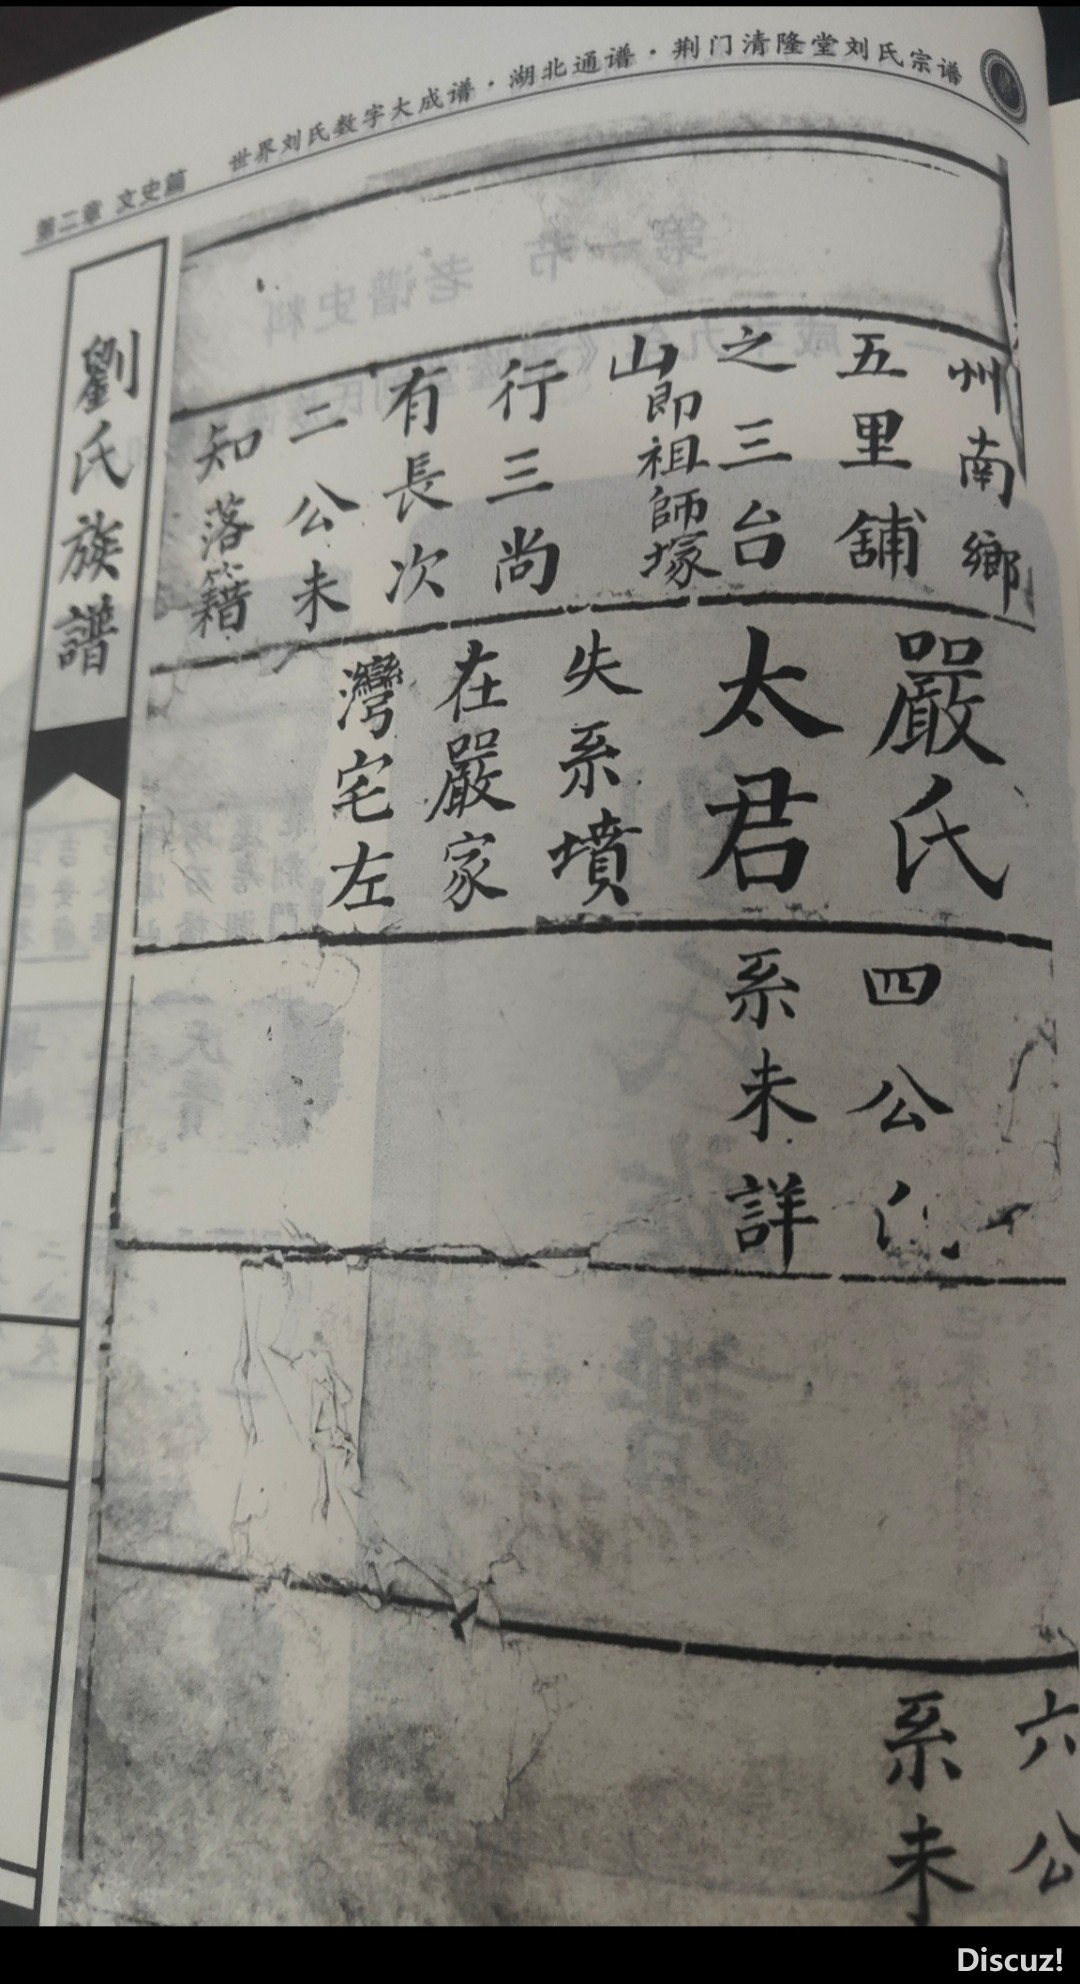 世界刘氏数字大成谱·湖北通谱·荆门清隆堂刘氏宗谱
第二章 文史篇
州南鄉
五里舖
之三台
山即祖師塚
行三尚
有長次
二公未
知落籍
嚴氏
太君
失系墳
在嚴家
灣宅左
四公
系未詳
六公
系未
劉氏族譜
Discuz!